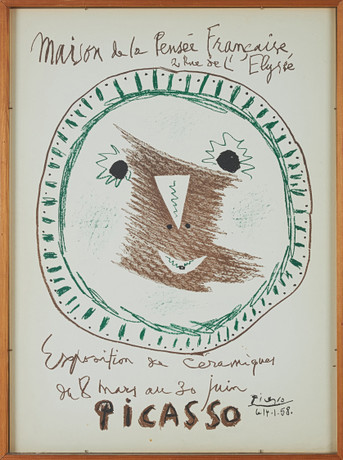 Maison de la Pensée Française
2 Rue de L'Elysée
Exposition de ceramiques
du 8 mars au 30 juin
PICASSO
Picasso
14.1.58.